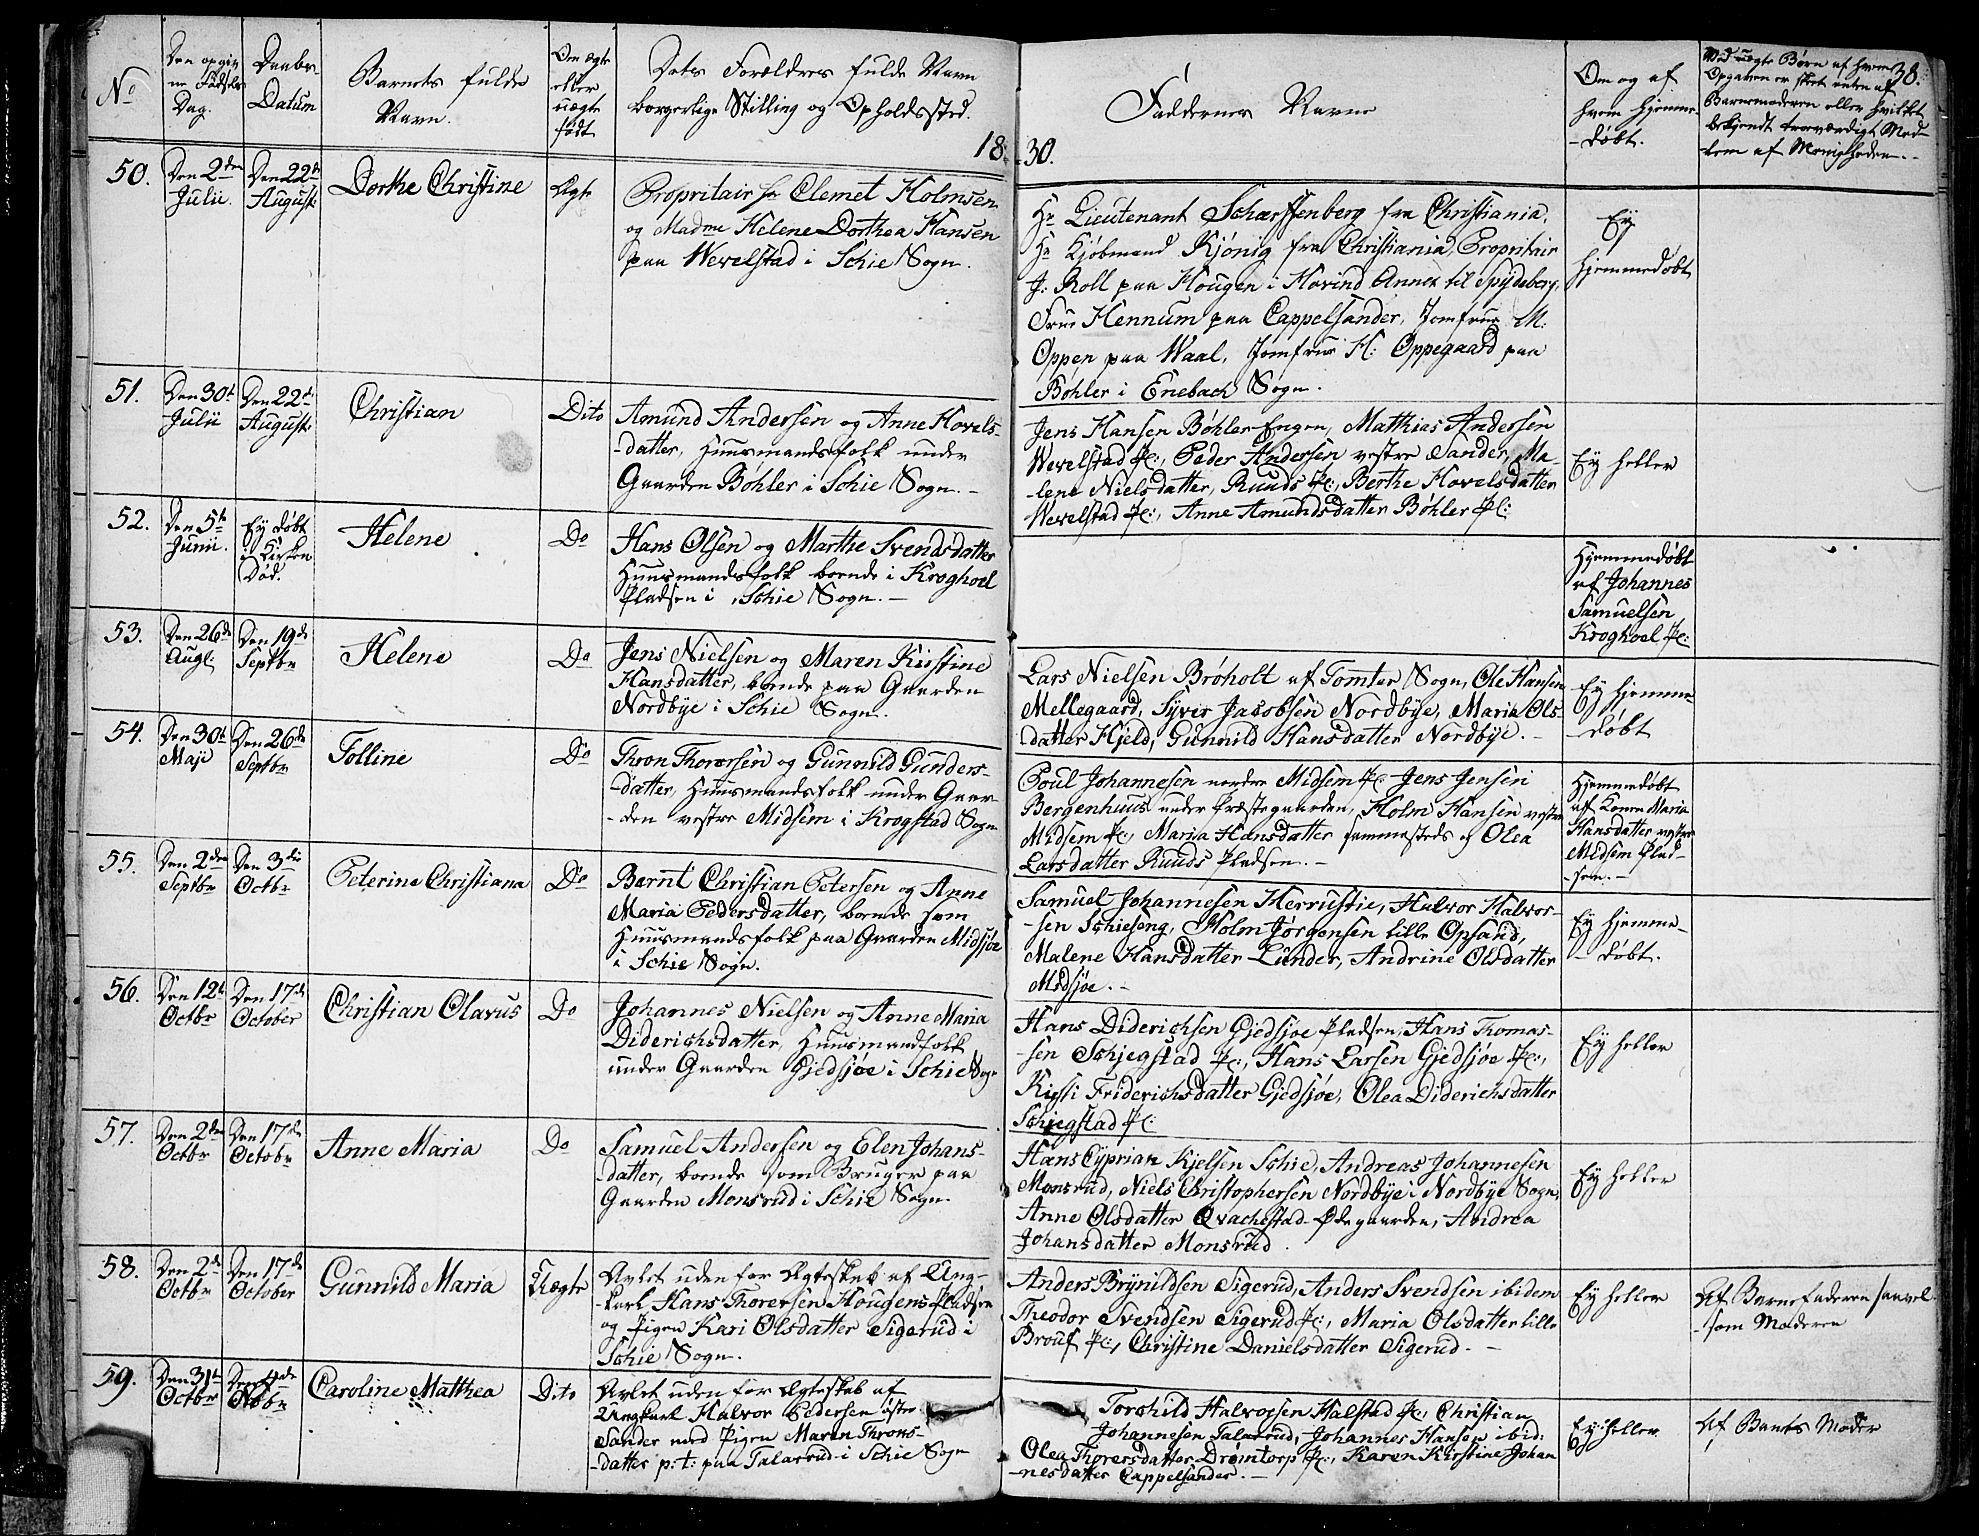 No
Den opgiv
ne Fødsels
Dag.
Daabs-
Datum
Barnets fulde
Navn.
Om ægte
eller
uægte
født
Dets Forældres fulde Navn
borgerlige Stilling og Opholdssted.
18
30.
Faddernes Navne
Om og af
hvem hjemme-
-døbt.
Ved uægte Børn af hvem
Opgaven er skeet enten af
Barnemoderen eller hvilket
bekjendt troværdigt Med-
-lem af Menigheden.-
38.
50.
Den 2den
Julii.
Den 22de
August
Dorthe Christine
Ægte
Propritair Hr Clemet Holmsen
og Madme Helene Dorthea Hansen
paa Wevelstad i Schie Sogn.
Hr Lieutenant Scharffenberg fra Christiania,
Hr Kjøbmand Kjønig fra Christiania, Propritair
J: Roll paa Hougen i Hovind Annex til Spydeberg,
Frue Hennum paa Cappelsander, Jomfrue M:
Oppen paa Waal, Jomfrue H: Oppegaard paa
Bøhler i Enebach Sogn.
Ey
hjemmedøbt
51.
Den 30t
Julii
Den 22t
August
Christian
Dito
Amund Andersen og Anne Hovels-
-datter, Huusmandsfolk under
Gaarden Bøhler i Schie Sogn.-
Jens Hansen Bøhler-Engen, Mathias Andersen
Wevelstad Pl:, Peder Andersen vestre Sander, Ma-
-lene Nielsdatter, Ruuds Pl:, Berthe Hovelsdatter
Wevelstad Pl:, Anne Amundsdatter Bøhler Pl:
Ey heller
52.
Den 5te
Junii.
Ey døbt
i Kirken
Død.
Helene
Do
Hans Olsen og Marthe Svendsdatter
Huusmandsfolk boende i Kroghoel
Pladsen i Schie Sogn.-
Hjemmedøbt
af Johannes
Samuelsen
Kroghoel Pl:
53.
Den 26de
Augl.
Den 19de
Septbr
Helene
Do
Jens Nielsen og Maren Kirstine
Hansdatter, boende paa Gaarden
Nordbye i Schie Sogn.
Lars Nielsen Brøholt af Tomter Sogn, Ole Hansen
Mellegaard, Syver Jacobsen Nordbye, Maria Ols-
datter Hjeld, Gunnild Hansdatter Nordbye.-
Ey hjemme
-døbt
54.
Den 30t
Maji
Den 26de
Septbr
Tolline
Do
Thron Thorersen og Gunnild Gunders-
-datter, Huusmandsfolk under Gaar-
-den vestre Midsem i Krogstad Sogn
Poul Johannesen nordre Midsem Pl: Jens Jensen
Bergenhuus under Præstegaarden, Holm Hansen vestre
Midsem Pl:, Maria Hansdatter sammesteds og Olea
Larsdatter Ruuds Pladsen.-
Hjemmedøbt
af Konen Maria
Hansdatter vestre
Midsem Plad-
-sen.-
55.
Den 2den
Septbr
Den 3die
Octbr
Peterine Christiana
Do
Bernt Christian Petersen og Anne
Maria Pedersdatter, boende som
Huusmandsfolk paa Gaarden Midsjøe
i Schie Sogn.
Samuel Johannesen Herrustie, Halvor Halvor-
-sen Schieseng, Holm Jørgensen lille Opsand,
Malene Hansdatter Lunder, Andrine Olsdatter
Midsjøe.-
Ey hjemme-
-døbt.
56.
Den 12t
Octbr
Den 17de
October
Christian Olavus
Do
Johannes Nielsen og Anne Maria
Diderichsdatter, Huusmandsfolk
under Gaarden Gjedsjøe i Schie Sogn
Hans Diderichsen Gjedsjøe Pladsen, Hans Thomas-
-sen Schjegstad Pl:, Hans Larsen Gjedsjøe Pl:,
Kisti Friderichsdatter Gjedsjøe, Olea Diderichsdatter
Schjegstad Pl:
Ey heller
57.
Den 2den
Octbr
Den 17de
Octobr
Anne Maria
Do
Samuel Andersen og Elen Johans-
-datter, boende som Bruger paa
Gaarden Monsrud i Schie Sogn.
Hans Cyprian Kjelsen Schie, Andreas Johannesen
Monsrud, Niels Christophersen Nordbye i Nordbye Sogn,
Anne Olsdatter Qvachestad-Ødegaarden, Andrea
Johansdatter Monsrud.
Ey heller
58.
Den 2de
Octbr
Den 17de
October
Gunnild Maria
Uægte
Avlet uden for Ægteskab af Ung-
-karl Hans Thorersen Hougens Pladsen
og Pigen Kari Olsdatter Sigerud i
Schie Sogn.
Anders Brynildsen Sigerud, Anders Svendsen ibidem
Theodor Svendsen Sigerud Pl:, Maria Olsdatter lille
Brouf Pl:, Christine Danielsdatter Sigerud.-
Ey heller
Af Barnefaderen saavel
-som Moderen
59.
Den 31t
Octbr
Den 4de
Caroline Matthea
Dito
Avlet uden for Ægteskab af
Ungkarl Halvor Pedersen østre
Sander med Pigen Maren Throns-
-datter p:t: paa Talarrud i Schie Sogn
Torchild Halvorsen Halstad Pl:, Christian
Johannesen Talarrud, Johannes Hansen ibid:
Olea Thorersdatter Drømtorp Pl:, Karen Kirstine Johan
-nesdatter Cappelsander.-
Ey heller
Af Barnets Moder